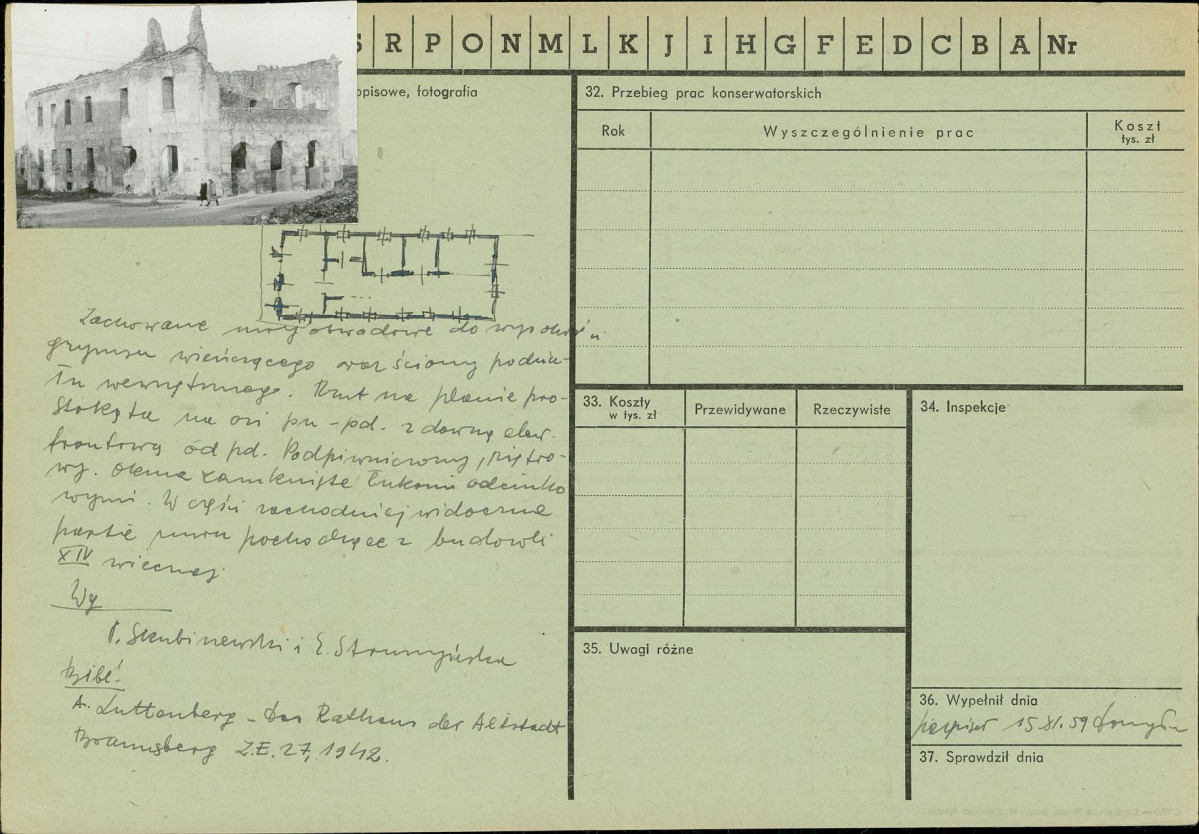 S R P O N M L K J I H G F E D C B A Nr
opisowe, fotografia
Zachowane mury obwodowe do wysokości
gzymsu wieńczącego oraz ściany podzia-
łu wewnętrznego. Rzut na planie pro-
stokąta na osi pn-pd. z dawną elew.
frontową od pd. Podpiwniczony, piętro-
wy. Okna zamknięte łukami odcinko
wymi. W części zachodniej widoczne
partie muru pochodzące z budowli
XIV wiecznej
Wg
Skubiszewski i E.
Bibl:
A. Luttenberg - Das Rathaus der Altstadt
Braunsberg Z.E. 27, 1942.
32. Przebieg prac konserwatorskich
Rok Wyszczególnienie prac Koszt
tys. zł
33. Koszty
w tys. zł
Przewidywane Rzeczywiste
34. Inspekcje
35. Uwagi różne
36. Wypełnił dnia
15.XI.59
37. Sprawdził dnia